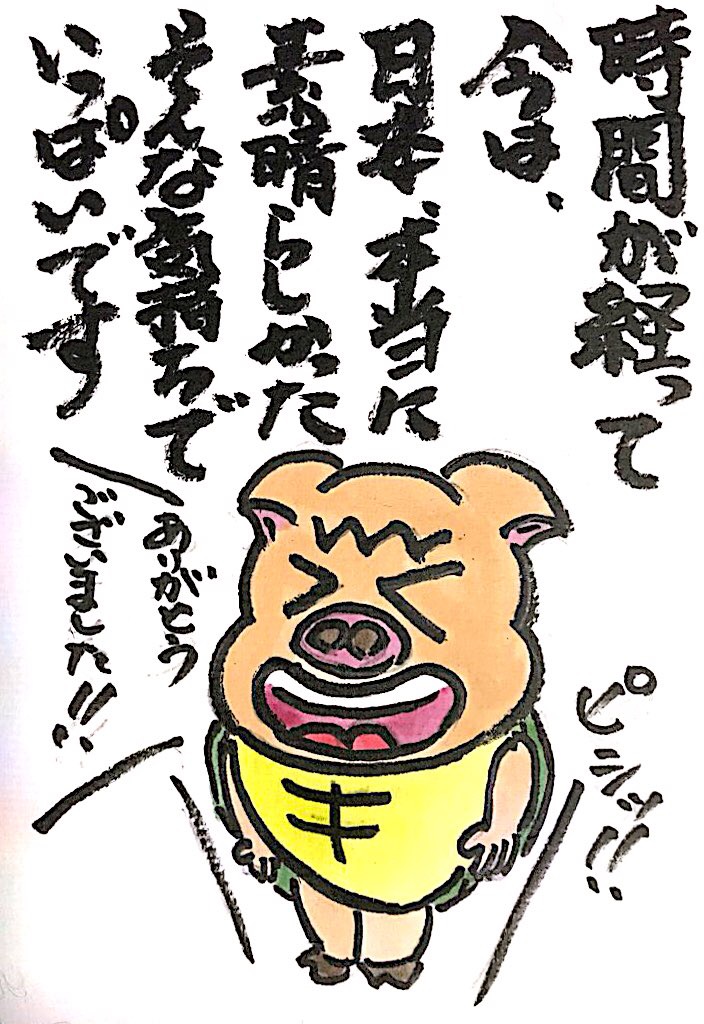 時間が経って
今は、
日本、本当に
素晴らしかった
そんな気持ちで
いっぱいです
ありがとう
ございました!!
ピシッ!!
キ